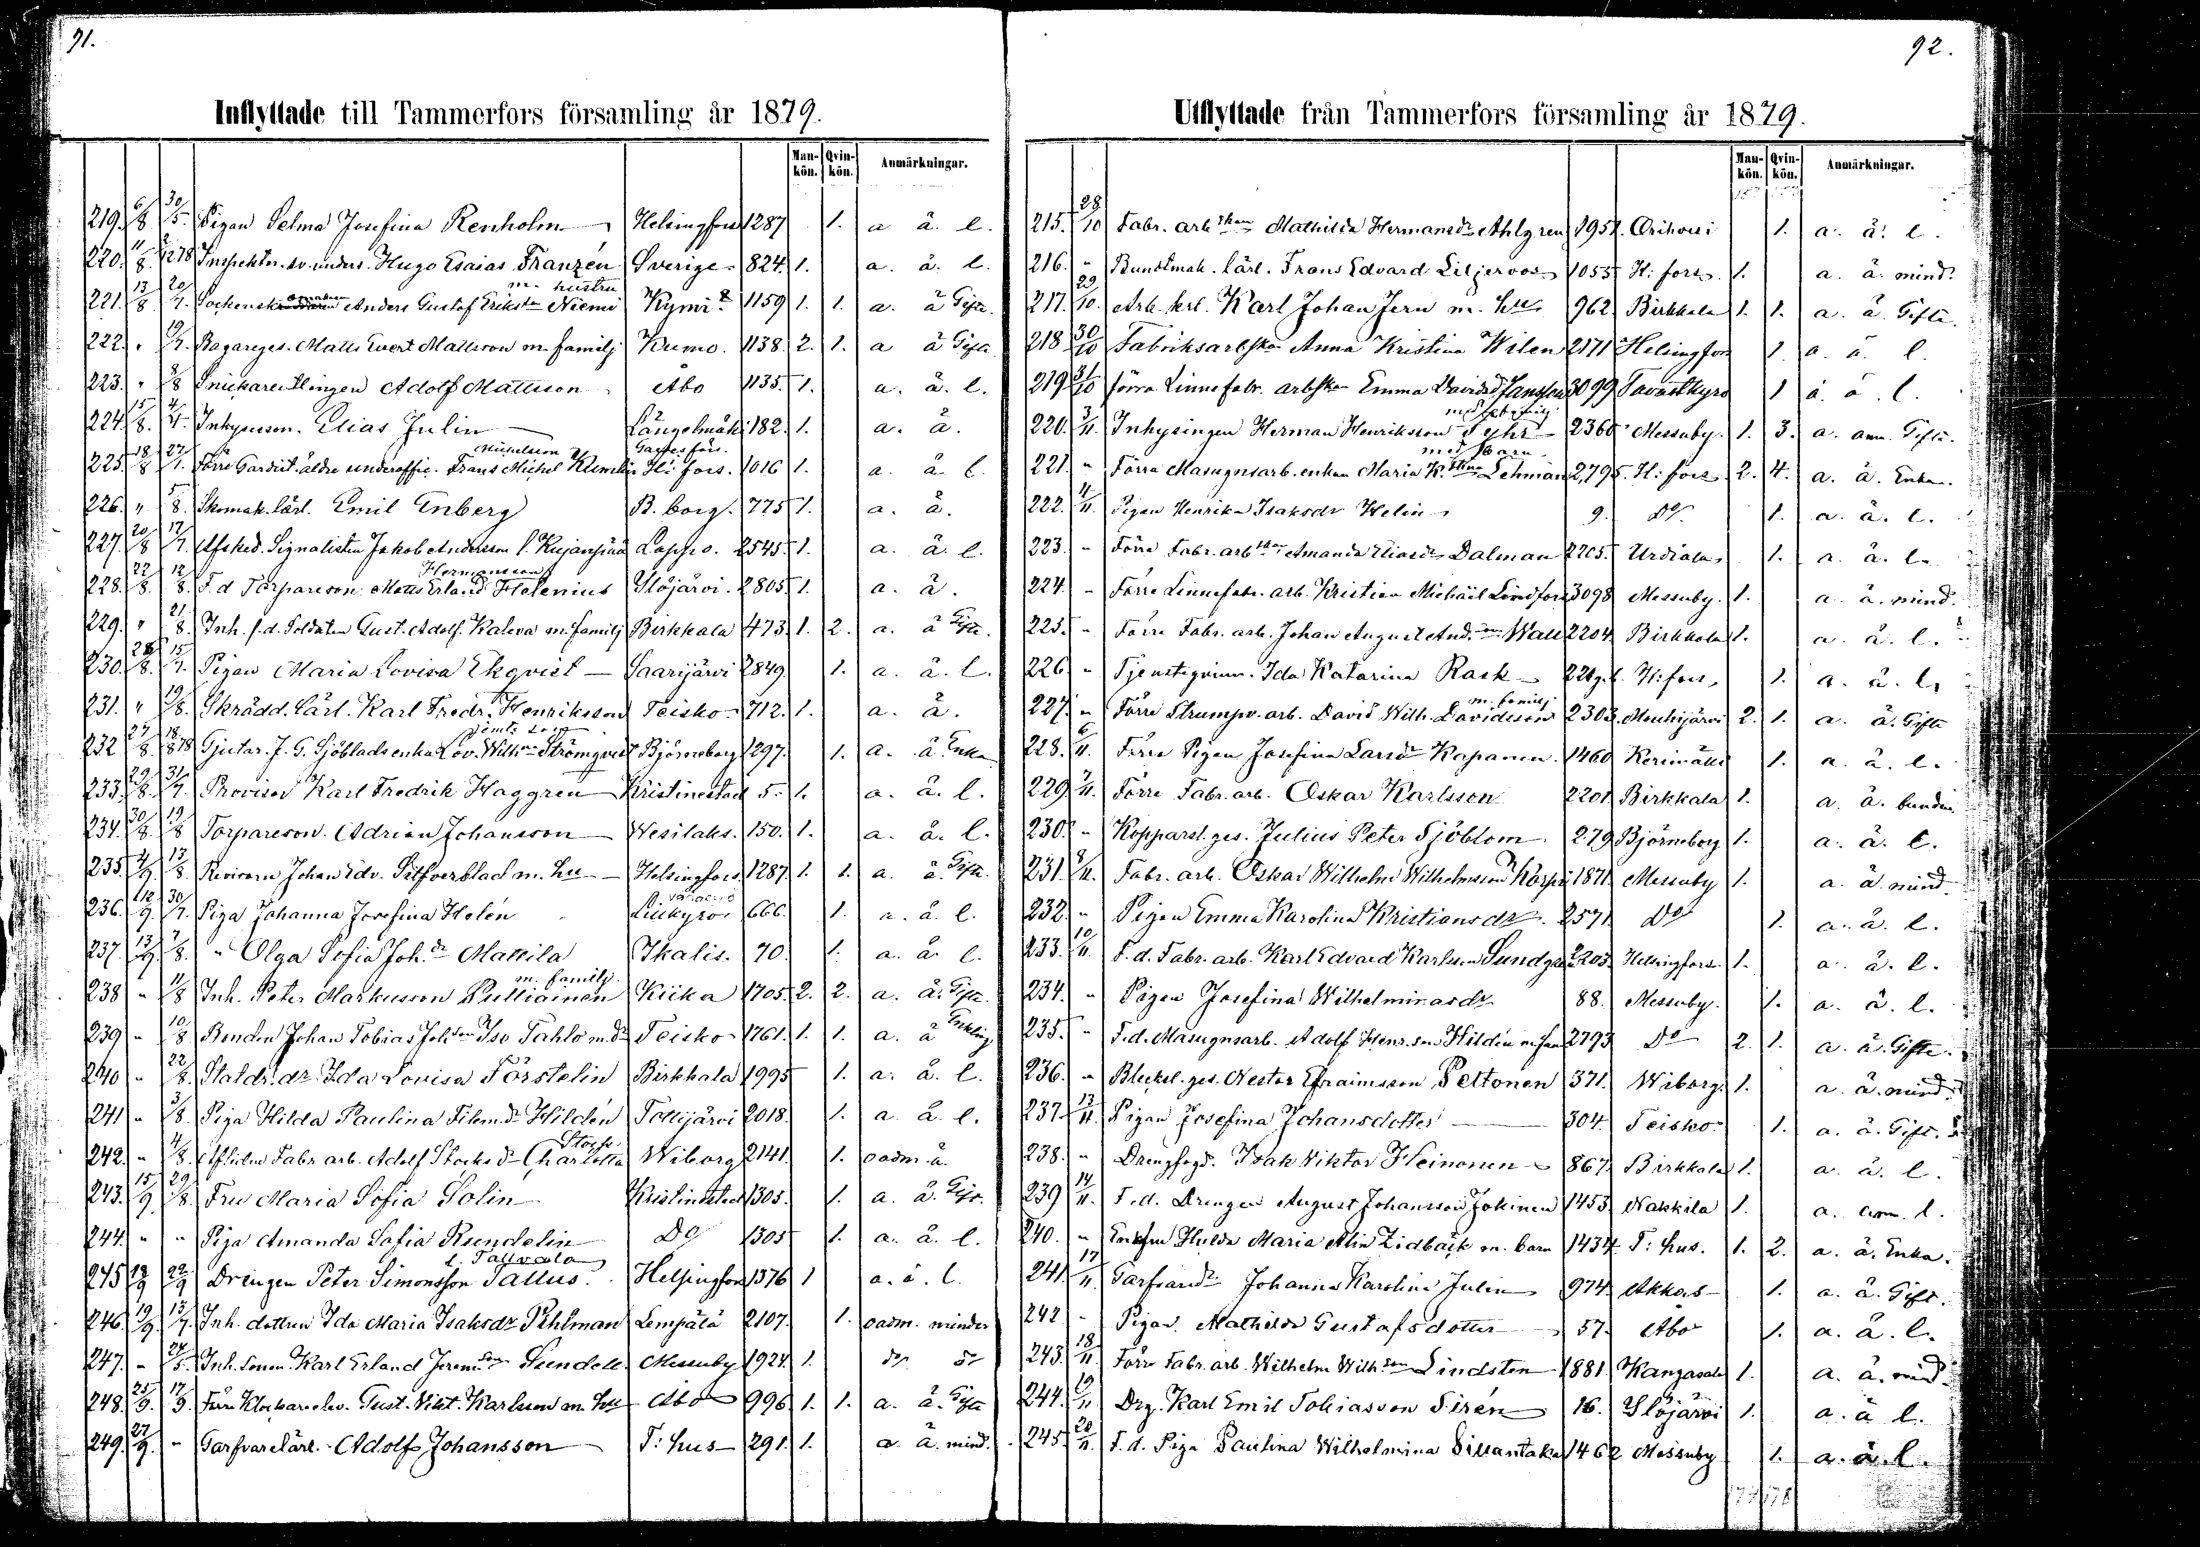 91.
Inflyttade till Tammerfors församling år 1879.
Man-kön. Qvin-kön. Anmärkningar.
219. 6/8 30/5. Pigan Selma Josefina Renholm Helsingfors 1287 1. a ä. l.
220. 11/8. 1278 Inspektor. sv. unders. Hugo Esaias Franzén Sverige 824. 1. a. ä. l.
m. hustru
221. 13/8 20/7. Anders Gustaf Erikss. Niemi Kymi 1159 1. 1. a. ä Gifta.
222. " 19/7. Bagareges. Matts Evert Mattsson m. familj Kumo. 1138. 2. 1. a ä Gifta
223. " 8/8 Snickarelärlingen Adolf Mattsson Åbo 1135. 1. a. ä. l.
224. 15/8. 4/7. Inhysesson. Elias Julin Längelmäki 182. 1. a. ä.
225. 18/8 27/7. Förre Gardist. äldre underoffic. Frans Michel H: fors. 1016 1. a ä l.
226. " 5/8. Skomak. lärl. Emil Enberg B. borg. 775 1. a. ä.
227. 20/8 17/7. Afsked. Signalisten Jakob Andersson l. Kujanpää Lappo. 2545. 1. a. ä. l.
Hermansson
228. 22/8. 12/8. F. d Torpareson. Matts Erland Helenius Ylöjärvi. 2805. 1. a. ä.
229. " 21/8. Inh. f. d. Soldaten Gust. Adolf. Kaleva m. familj Birkkala 473. 1. 2. a. ä Gifta.
230. 26/8. 15/7. Pigan Maria Lovisa Ekqvist Saarijärvi 2849. 1. a. ä. l.
231. " 19/8. Skrädd. Lärl. Karl Fredr. Henriksson Teisko 712. 1. a. ä.
232 27/8 18/878 Gjutar. J. G. Sjöblads enka Lov. Wilh. Strömqvist Björneborg 1297. 1. a. ä Enka
233. 29/8. 31/7. Provisor Karl Fredrik Haggren Kristinestad 5. 1. a. ä. l.
234. 30/8 19/8 Torpareson. Adrian Johansson Wesilaks. 150. 1. a. ä. l.
235. 4/9 13/8. Revisorn Johan Edv. Silfverblad m. hu Helsingfors. 1287. 1. 1. a. ä Gifta.
236. 12/9 30/7. Piga Johanna Josefina Helén 666. 1. a. ä. l.
237. 13/9. 7/8. " Olga Sofia Joh.dr Mattila Ikalis. 70. 1. a. ä. l.
m. familj
238 " 11/8 Inh. Peter Markusson Pulliainen Kiika 1705. 2. 2. a. ä. Gifta.
239 " 10/8 Bonden Johan Tobias Johsson Iso Tahlo m. dr Teisko 1761. 1. 1. a. ä Enkling
240 " 22/8. Statdr. dr. Ida Lovisa Törstelin Birkkala 1995 1. a. ä. l.
241 " 3/8. Piga Hilda Paulina Filem.dr Hildén Tottijärvi 2018. 1. a. ä. l.
242. " 4/8. Aflidne Fabr. arb. Adolf Stocks dr Charlotta Wiborg 2141. 1. oadm. ä.
243. 15/9 29/8. Fru Maria Sofia Solin Kristinestad 1305. 1. a. ä. Gift.
244. " " Piga Amanda Sofia Rundelin Do 1305 1. a. ä. l.
l. Tallvala
245 18/9 22/9 Drängen Peter Simonsson Tallus. Helsingfors 1376 1 a. ä. l.
246. 19/9. 13/7. Inh. dottren Ida Maria Isaksdr Pihlman Lempälä 2107. 1. oadm. minder
247. " 24/5. Inh. Sonen Karl Erland Jerem.son Sundell Messuby 1924. 1. do do
248. 25/9. 17/9. Förre Klockareelev. Gust. Vikt. Karlsson m. hu Åbo 996 1. 1. a. ä. Gifta
249. 27/9. " Garfvarelärl. Adolf Johansson T: hus 291. 1. a. ä. mind.
92.
Utflyttade från Tammerfors församling år 1879.
Man-kön. Qvin-kön. Anmärkningar.
215. 28/10 Fabr. arbskan Mathilda Hermansdr Ahlgren 1951. Orihvesi 1. a. ä. l.
216. " Buntmak. lärl. Frans Edvard Liljeroos 1055 H: fors. 1. a. ä. mind.
217. 29/10. Arb. krl. Karl Johan Jern m. hu 962 Birkkala 1. 1. a. ä. Gifta.
218 30/10 Fabriksarbskan Anna Kristina Wilen 2171 Helsingfors 1 a. ä. l.
219 31/10 förra Linnefabr. arbskan Emma Davidsd Jansson 3099 Tavastkyro 1 a. ä. l.
220. 3/11. Inhysingen Herman Henriksson Fyhr 2360 Messuby. 1. 3. a. ann. Gifta.
med barn
221. " Förra Masugnsarb. enkan Maria K. Lehman 2,795. H: fors. 2. 4. a. ä. Enka.
222. 4/11. Pigan Henrika Isaksdr Helin 9. Do. 1. a. ä. l.
223. " Förre Fabr. arbskan Amanda Eliasdr Dalman 2205. Urdiala 1. a. ä. l.
224. " Förre Linnefabr. arb. Kristian Michäel Lindfors 3098 Messuby. 1. a. ä. mind.
225. " Förre Fabr. arb. Johan August And.son Wall 2204 Birkkala 1. a. ä. l.
226 " Tjensteqvinn. Ida Katarina Rask H: fors, 1. a. ä. l.
m. familj
227. " Förre Strumpv. arb. David Wilh. Davidsson 2303. Mouhijärvi 2. 1. a. ä. Gifta
228. 6/11. Förre Pigan Josefina Larsdr Kapanen. 1460 Kerimäki 1. a. ä. l.
229. 7/11. Förre Fabr. arb. Oskar Karlsson 2201 Birkkala 1. a. ä.
230. " Kopparsl. ges. Julius Peter Sjöblom 279 Björneborg 1. a. ä. l.
231. 8/11. Fabr. arb. Oskar Wilhelm Wilhelmsson Körpi 1871. Messuby 1. a. ä mind.
232. " Pigan Emma Karolina Kristiansdr. 2571. Do 1. a. ä. l.
233. 10/11. F. d. Fabr. arb. Karl Edvard Karlsson 2203. Helsingfors. 1. a. ä. l.
234. " Pigan Josefina Wilhelminasdr 88. Messuby. 1. a. ä. l.
235. " F. d. Masugnsarb. Adolf Henr. son Hildén m. fam 2793 Do 2. 1. a. ä. Gifta.
236. " Blecksl. ges. Nestor Efraimsson Peltonen 371. Wiborg. 1. a. ä. mind.
237. 13/11. Pigan Josefina Johansdotter 304. Teisko. 1. a. ä. Gift.
238. " Drengfogd. Isak Viktor Heinonen 867. Birkkala 1. a. ä. l.
239 14/11. F. d. Drengen August Johansson Jokinen 1453. Nakkila 1. a. ann. l.
240. " Enkefru Hulda Maria Alin Zidbäck m. barn 1434. T: hus. 1. 2. a. ä. Enka.
241. 17/11. Garfvaredr Johanna Karolina Julin 974. Akkas 1. a. ä. Gift.
242 " Pigan Mathilda Gustafsdotter 57. Åbo 1. a. ä. l.
243. 18/11. Förre Fabr. arb. Wilhelm Wilh.son Lindsten 1881. Kangasala 1. a. ä. mind.
244. 19/11 Drg. Karl Emil Tobiasson Sirén 16. Ylöjärvi 1. a. ä l.
245. 20/11. F. d. Piga Paulina Wilhelmina Sillantaka 1462 Messuby 1. a. ä. l.